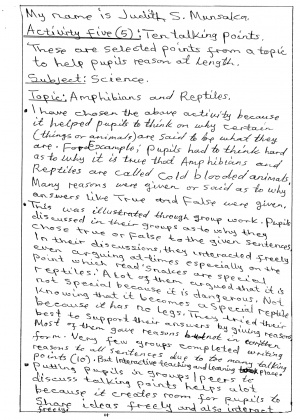 My name is Judith S. Munsaka.
Activity Five (5): Ten talking points.
These are selected points from a topic
to help pupils reason at length.
Subject: Science.
Topic: Amphibians and Reptiles.
• I have chosen the above activity because
it helped pupils to think on why certain
(things or animals) are said to be what they
are. For Example; pupils had to think hard
as to why it is true that Amphibians and
Reptiles are called Cold blooded animals,
Many reasons were given or said as to why
answers like True and False were given.
• This was illustrated through group work. Pupils
discussed in their groups as to why they
chose true or False to the given sentences.
In their discussions, they interacted freely
even arguing at times especially on the
point which read 'Snakes are special
reptiles.' A lot of them argued that it is
not special because it is dangerous. Not
knowing that it becomes a special reptile
because it has no legs. They tried their
best to support their answers by giving reasons.
Most of them gave reasons but not in written
form. Very few groups completed writing
reasons to all sentences due to the many talking
points (10). But interactive teaching and learning took place
• Putting pupils in groups/peers to
discuss talking points helps alot
because it creates room for pupils to
Share ideas freely and also interact
freely